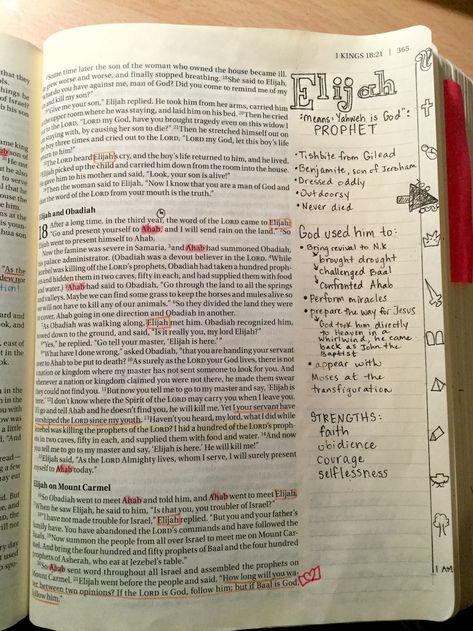 1 KINGS 18:21 | 365
17 Some time later the son of the woman who owned the house became ill.
grew worse and worse, and finally stopped breathing. 18 She said to Elijah,
do you have against me, man of God? Did you come to remind me of my
and kill my son?"
"Give me your son," Elijah replied. He took him from her arms, carried him
upper room where he was staying, and laid him on his bed. 20 Then he cried
to the LORD, "LORD my God, have you brought tragedy even on this widow I
staying with, by causing her son to die?" 21 Then he stretched himself out on
boy three times and cried out to the LORD, "LORD my God, let this boy's life
return to him!"
The LORD heard Elijah's cry, and the boy's life returned to him, and he lived.
Elijah picked up the child and carried him down from the room into the house.
gave him to his mother and said, "Look, your son is alive!"
Then the woman said to Elijah, "Now I know that you are a man of God and
that the word of the LORD from your mouth is the truth."
Elijah and Obadiah
18 After a long time, in the third year, the word of the LORD came to Elijah:
"Go and present yourself to Ahab, and I will send rain on the land." So
Elijah went to present himself to Ahab.
Now the famine was severe in Samaria, 3 and Ahab had summoned Obadiah,
his palace administrator. (Obadiah was a devout believer in the LORD. 4 While
Jezebel was killing off the LORD's prophets, Obadiah had taken a hundred proph-
ets and hidden them in two caves, fifty in each, and had supplied them with food
and water.) 5 Ahab had said to Obadiah, "Go through the land to all the springs
and valleys. Maybe we can find some grass to keep the horses and mules alive so
we will not have to kill any of our animals." 6 So they divided the land they were
to cover, Ahab going in one direction and Obadiah in another.
As Obadiah was walking along, Elijah met him. Obadiah recognized him,
bowed down to the ground, and said, "Is it really you, my lord Elijah?"
"Yes," he replied. "Go tell your master, 'Elijah is here.'"
"What have I done wrong," asked Obadiah, "that you are handing your servant
over to Ahab to be put to death? 10 As surely as the LORD your God lives, there is not
a nation or kingdom where my master has not sent someone to look for you. And
whenever a nation or kingdom claimed you were not there, he made them swear
they could not find you. 11 But now you tell me to go to my master and say, 'Elijah is
here.' 12 I don't know where the Spirit of the LORD may carry you when I leave you.
If I go and tell Ahab and he doesn't find you, he will kill me. Yet I your servant have
worshiped the LORD since my youth. 13 Haven't you heard, my lord, what I did while
Jezebel was killing the prophets of the LORD? I hid a hundred of the LORD's proph-
ets in two caves, fifty in each, and supplied them with food and water. 14 And now
you tell me to go to my master and say, 'Elijah is here.' He will kill me!"
Elijah said, "As the LORD Almighty lives, whom I serve, I will surely present
myself to Ahab today."
Elijah on Mount Carmel
16 So Obadiah went to meet Ahab and told him, and Ahab went to meet Elijah.
17 When he saw Elijah, he said to him, "Is that you, you troubler of Israel?"
"I have not made trouble for Israel," Elijah replied. "But you and your father's
family have. You have abandoned the LORD's commands and have followed the
Baals. 19 Now summon the people from all over Israel to meet me on Mount Car-
mel. And bring the four hundred and fifty prophets of Baal and the four hundred
prophets of Asherah, who eat at Jezebel's table."
20 So Ahab sent word throughout all Israel and assembled the prophets on
Mount Carmel. 21 Elijah went before the people and said, "How long will you wa-
ver between two opinions? If the LORD is God, follow him; but if Baal is God,
follow him."
Elijah
"means: "Yahweh is God":
PROPHET
• Tishbite from Gilead
• Benjamite, son of Jeroham
• Dressed oddly
• Outdoorsy
• Never died
God used him to:
• Bring revival to N.K
brought drought
challenged Baal
confronted Ahab
• Perform miracles
• prepare the way for Jesus
God took him directly
to heaven in a
whirlwind, he came
back as John the
Baptist
• appear with
Moses at the
transfiguration
STRENGTHS:
faith
obidience
courage
selflessness
I AM